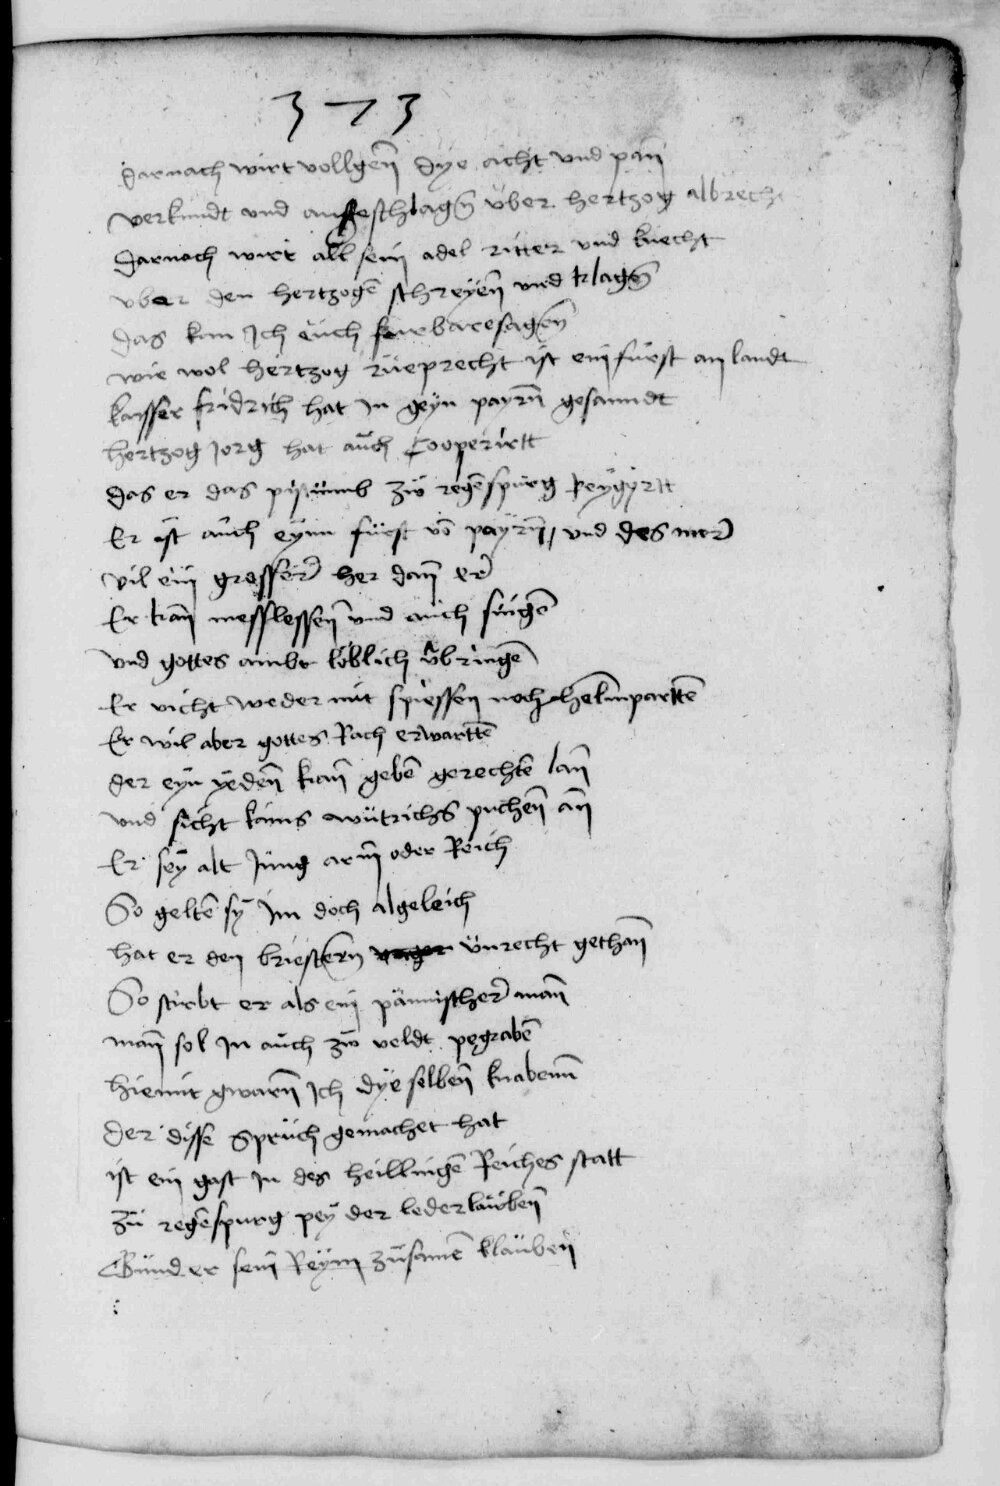 373
darnach wirt vollgen̄ dye acht und pan̄
verkundt und angeschlagn̄ über hertzog albrecht
darnach wirt all sein adel ritter und knecht
uber den hertzogē schreyen̄ und klagn̄
das kan Ich euch furbare sagen̄
wie wol hertzog rüeprecht ist ein fürst an landt
kaysser fridrich hat In geyn payrn̄ gesanndt
hertzog Jorg hat auch Cooperirtt
das er das pistumb zw regēspurg regyrtt
Er ist auch eynn fürst vō payrn̄, und des mer
vil ein grosser her dan̄ er
Er kan̄ messlessen̄ und auch singē
und gottes ambt löblich v̈bringē
Er vicht weder mit spiessen noch helmpartē
Er wil aber gottes Rach erwartē
der eyn yeden̄ kan̄ gebē gerechtē lan̄
und sicht kains wütrichs puchen̄ an̄
Er sey alt Jung arm̄ oder Reich
So geltē sy Im doch algeleich
hat er den briestern unrecht gethan̄
So stirbt er als ein pännischer man̄
man̄ sol In auch zw veldt pegrabē
hiemit gwarn̄ Ich dye selben̄ knabenn
der disse Spruch gemachet hat
ist ein gast In des heillingē Reiches statt
zu regēspurg pey der lederlauben̄
Gund er sein Reym zusamē klauben